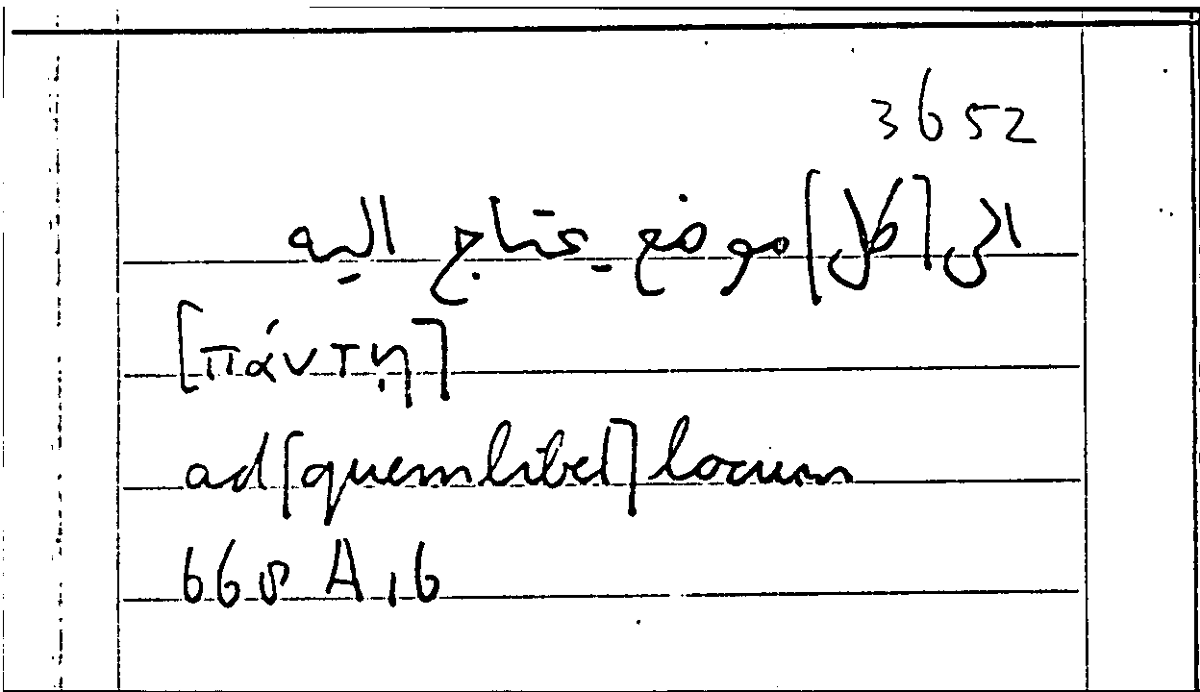 3652
الى [كل] موضع يحتاج اليه
[πάντῃ]
ad [quemlibet] locum
668 A 16